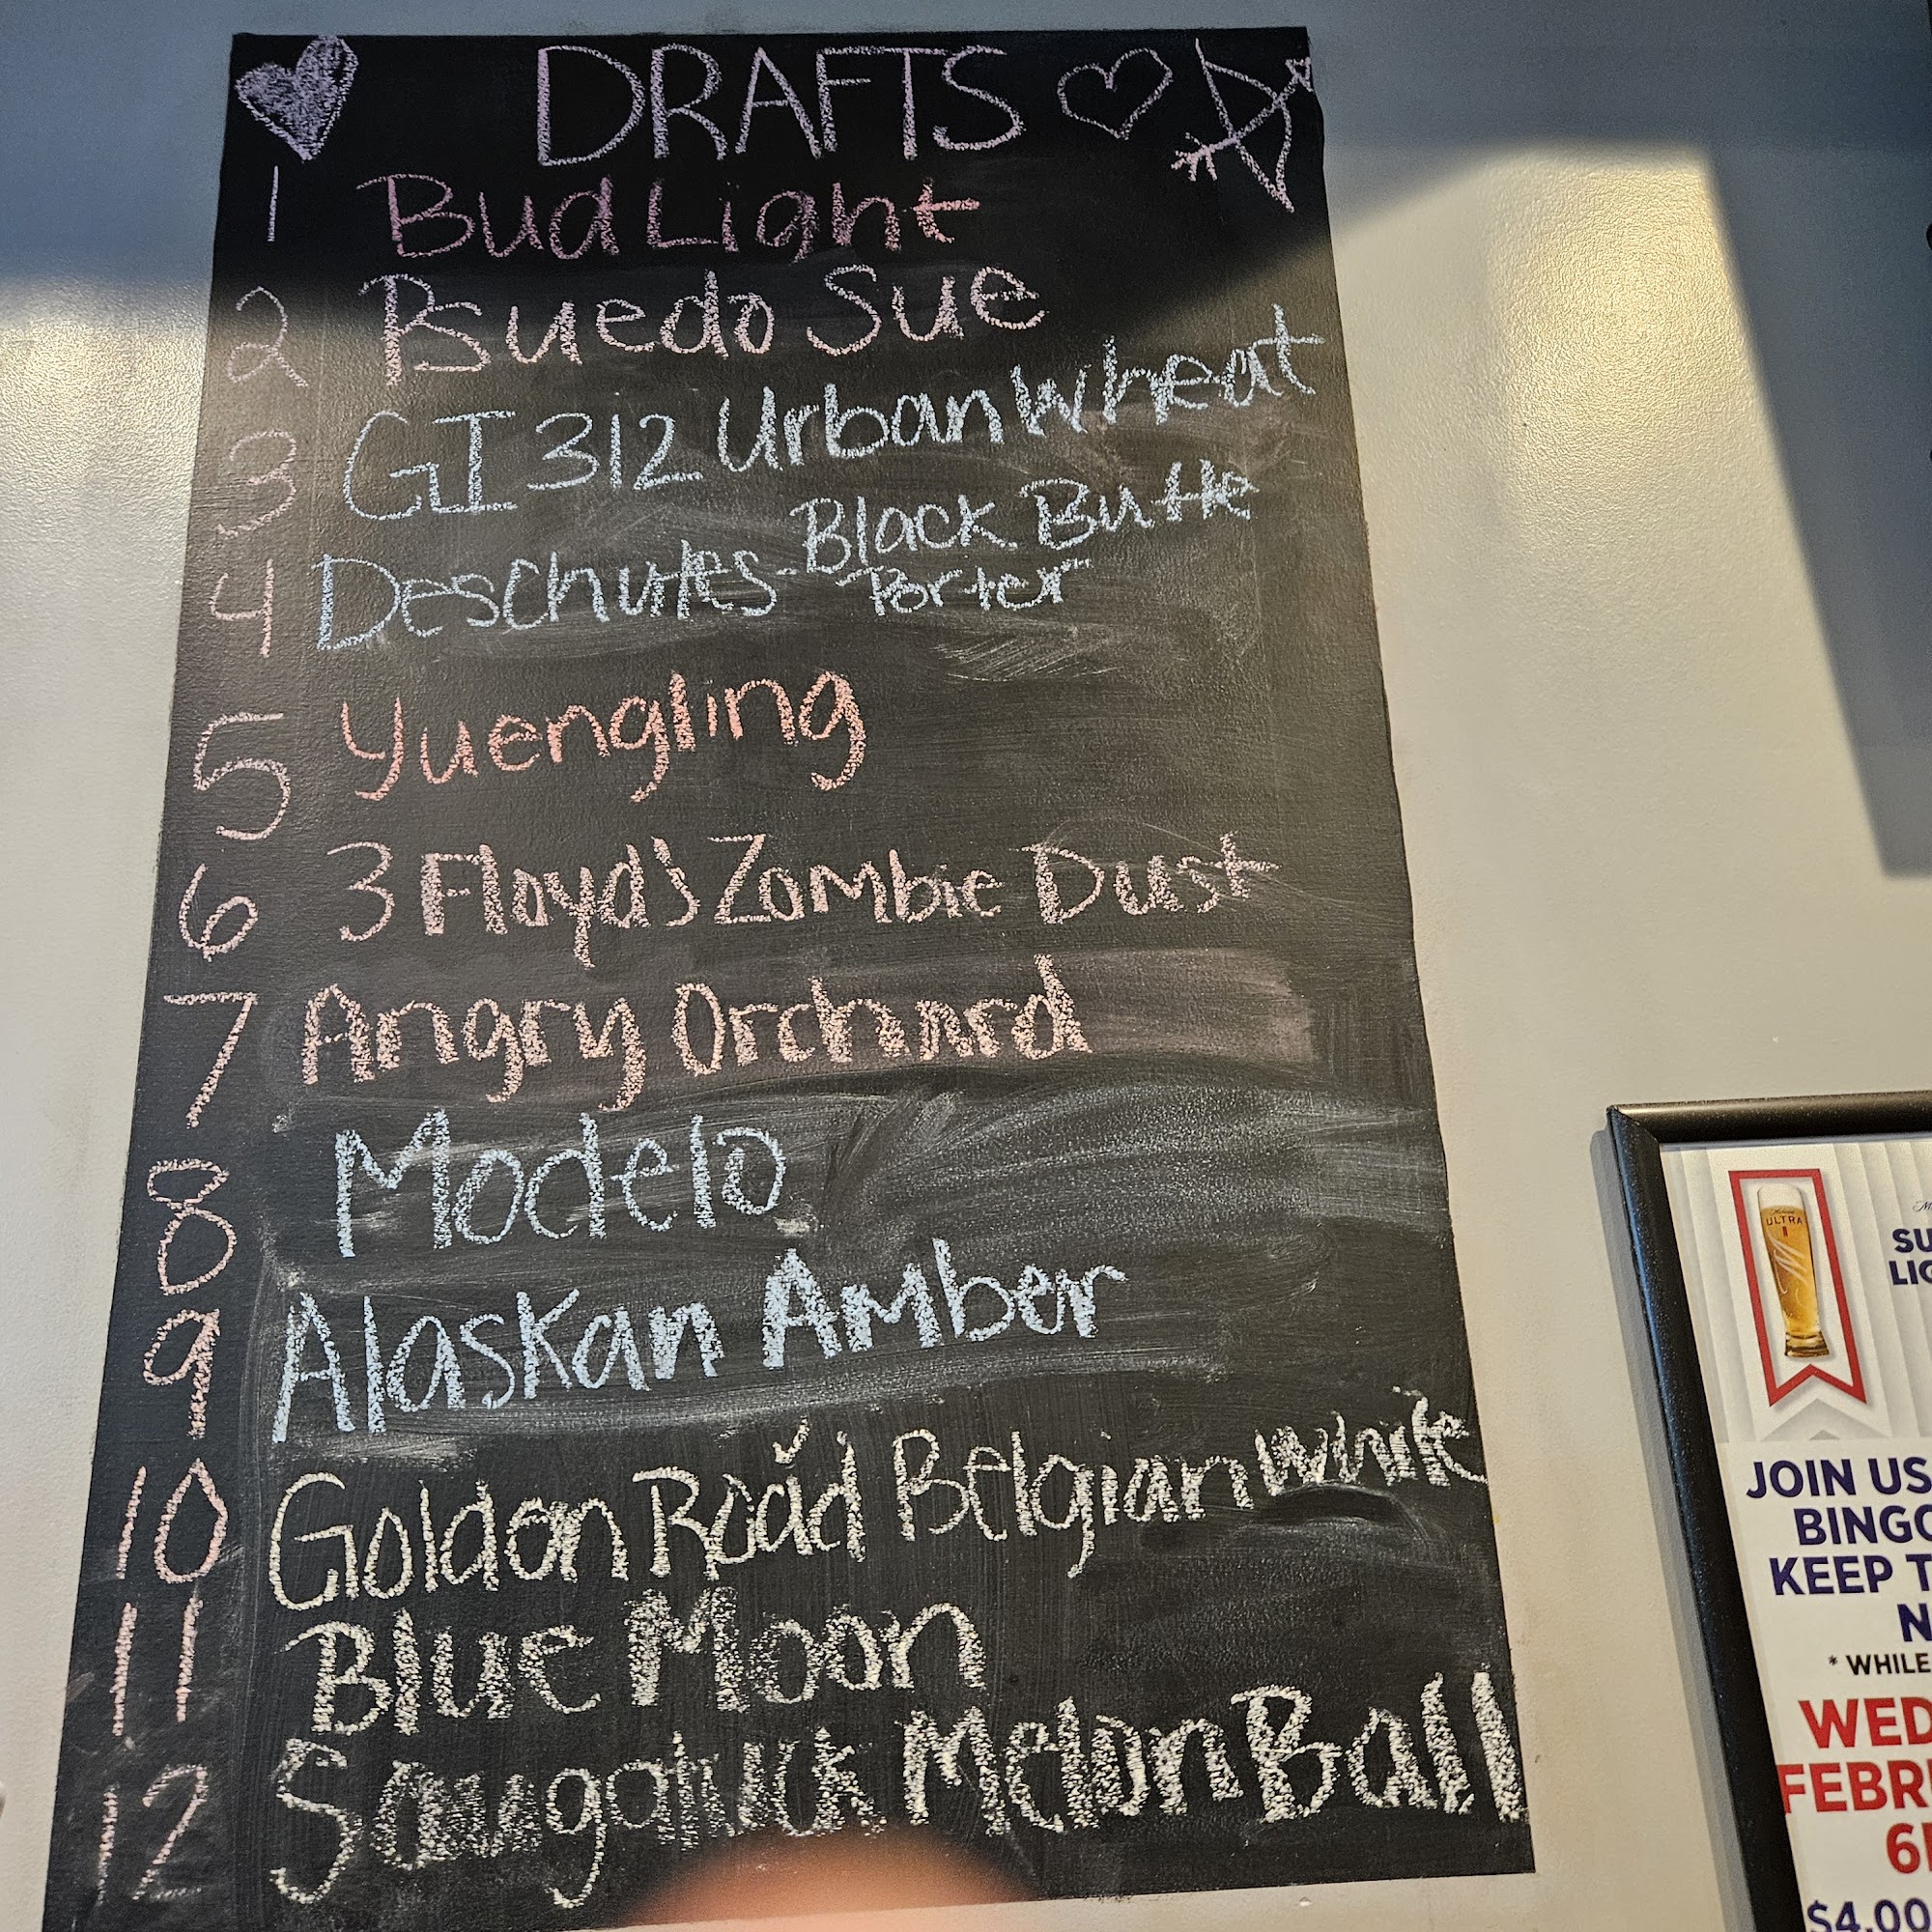 DRAFTS
1 Bud Light
2 Psuedo Sue
3 GI 312 Urban Wheat
4 Deschutes Black Butte
Porter
5 Yuengling
6 3 Floyds Zombie Dust
7 Angry Orchard
8 Modelo
9 Alaskan Amber
10 Golden Road Belgian White
11 Blue Moon
12 Saugatuck Melon Ball
ULTRA
SU
LIG
JOIN US
BINGO
KEEP T
N
* WHILE
WED
FEBRU
6P
$4.00